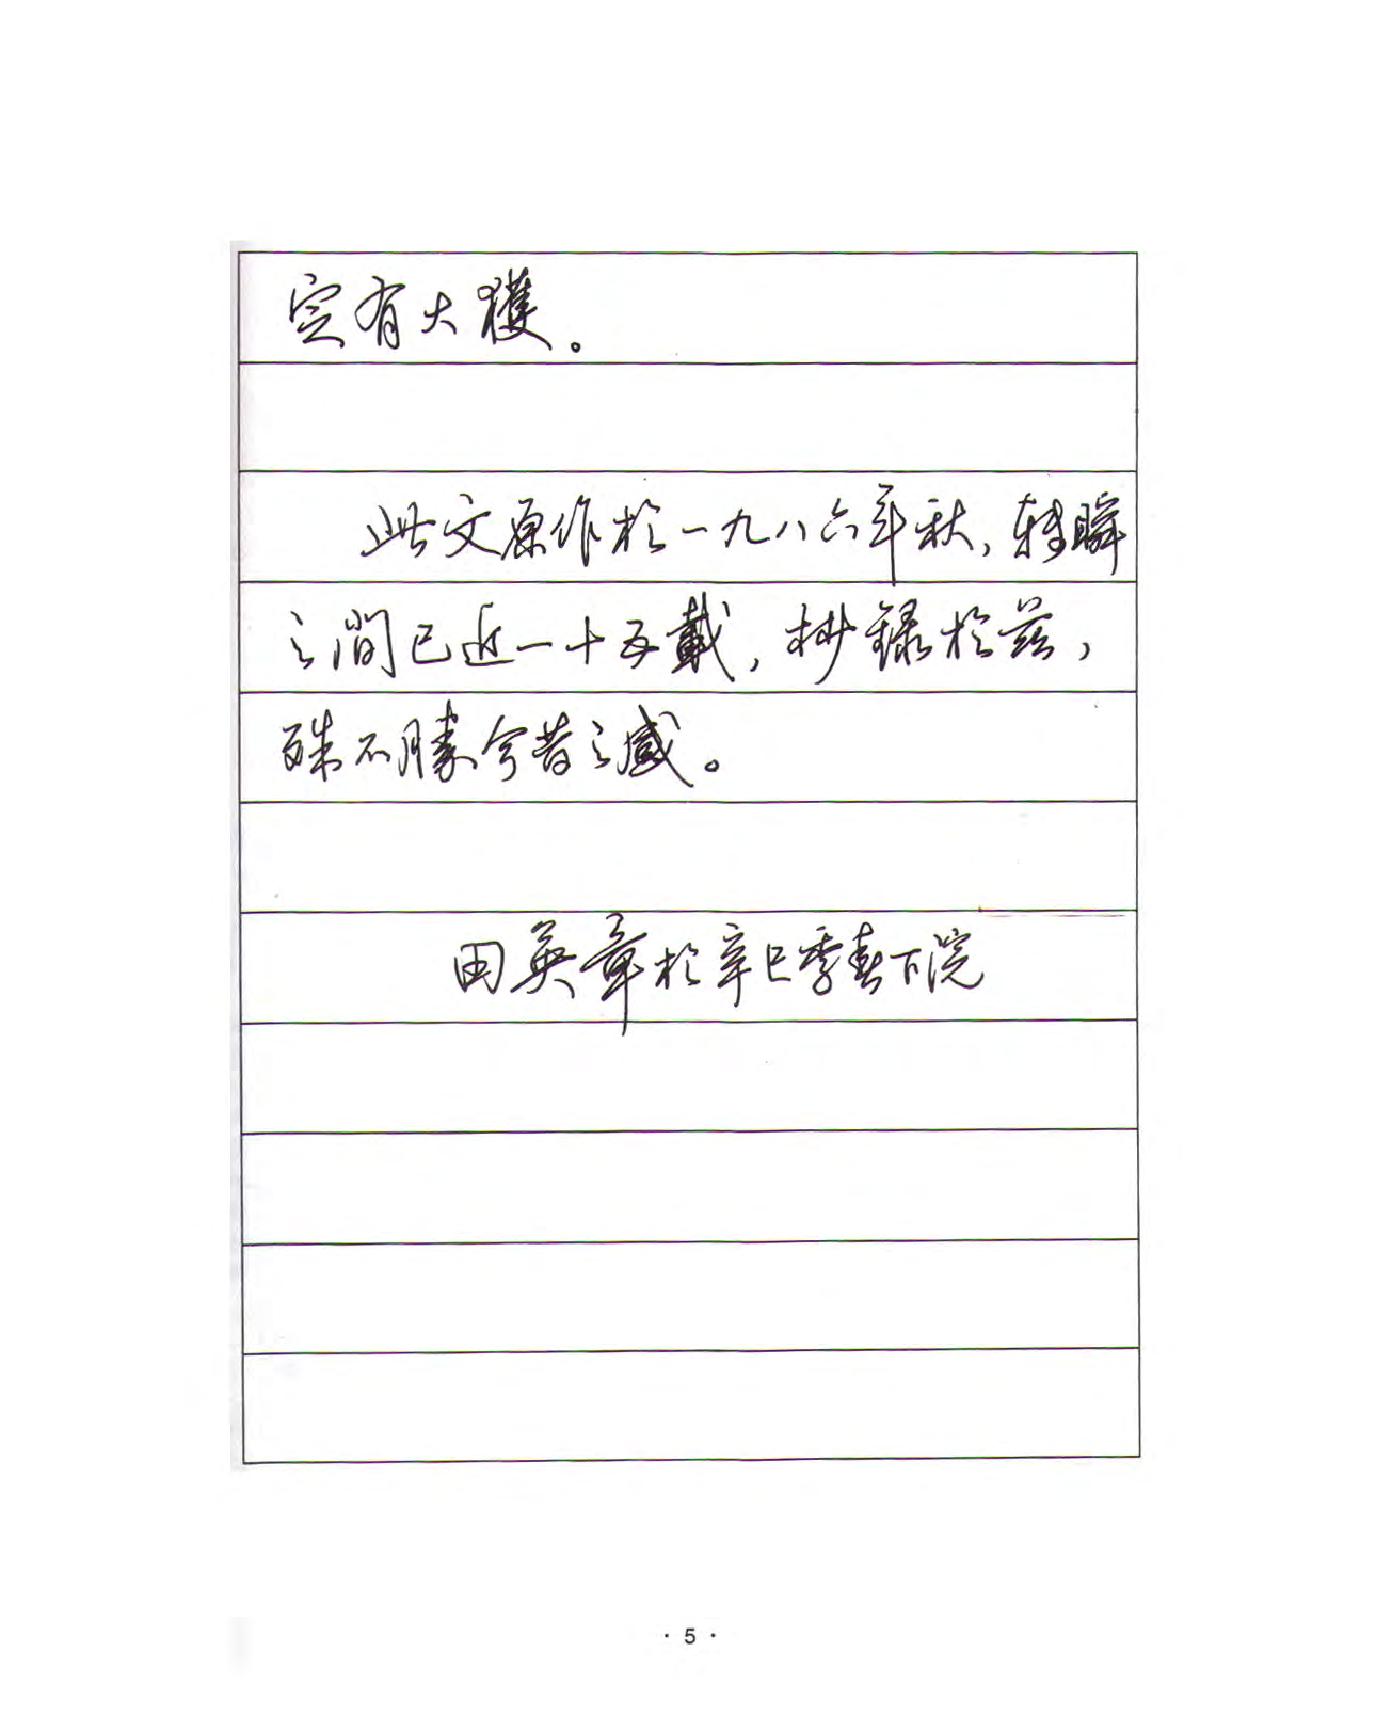 定有大獲。
此文原作於一九八六年秋，轉瞬
之間已近一十五載，抄錄於兹，
殊不勝今昔之感。
田英章於辛巳季春下浣
· 5 ·